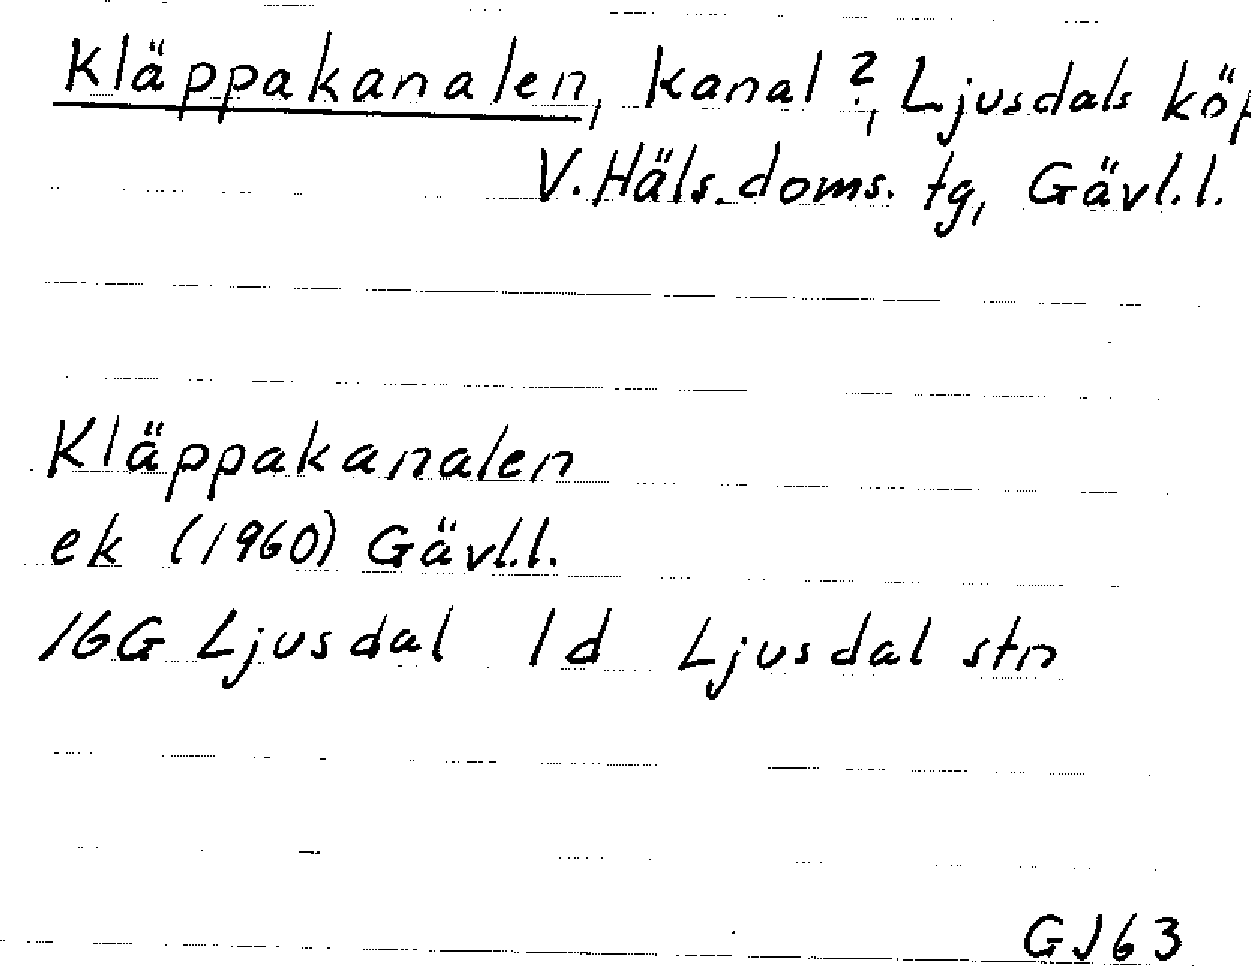 Kläppakanalen, kanal?, Ljusdals köp
V. Häls. doms. tg, Gävl.l.
Kläppakanalen
ek (1960) Gävl.l.
16G Ljusdal 1d Ljusdal stn
GJ63